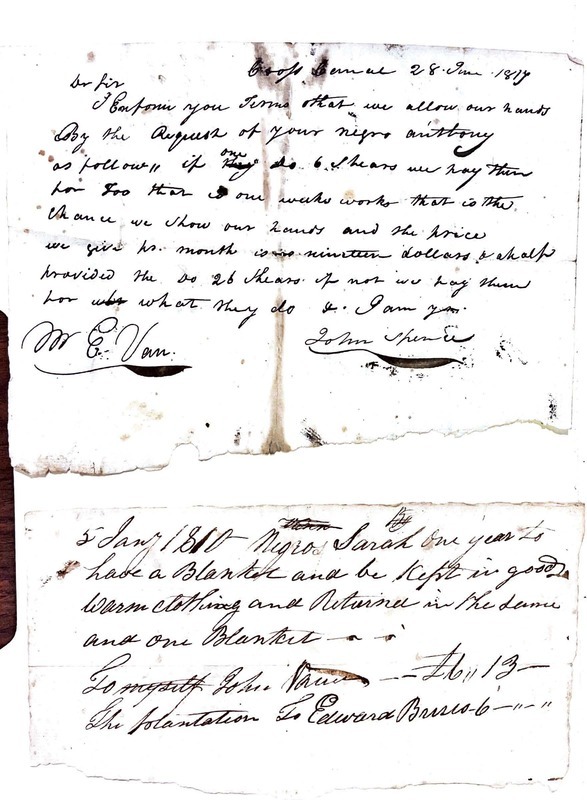 Cross Canal 28 June 1817
Dr Sir
I Enform you Terms that we allow our hands
By the Request of your negro anthony
as follow,, if one they do 6 Shears we pay them
for Too that is one weeks works that is the
Chance we Show our hands and the price
we give pr. month is nineteen dollars & a half
provided the Do 26 Shears if not we pay them
for what they do &. I am yrs.
Mr E. Van. John Spence
5 Jany 1810 Negro Sarah one year to
have a Blanket and be kept in good
warm clothing and Returned in the same
and one Blanket
To myself John — £6,, 13 —
The plantation To Edward 6 -,,-,,